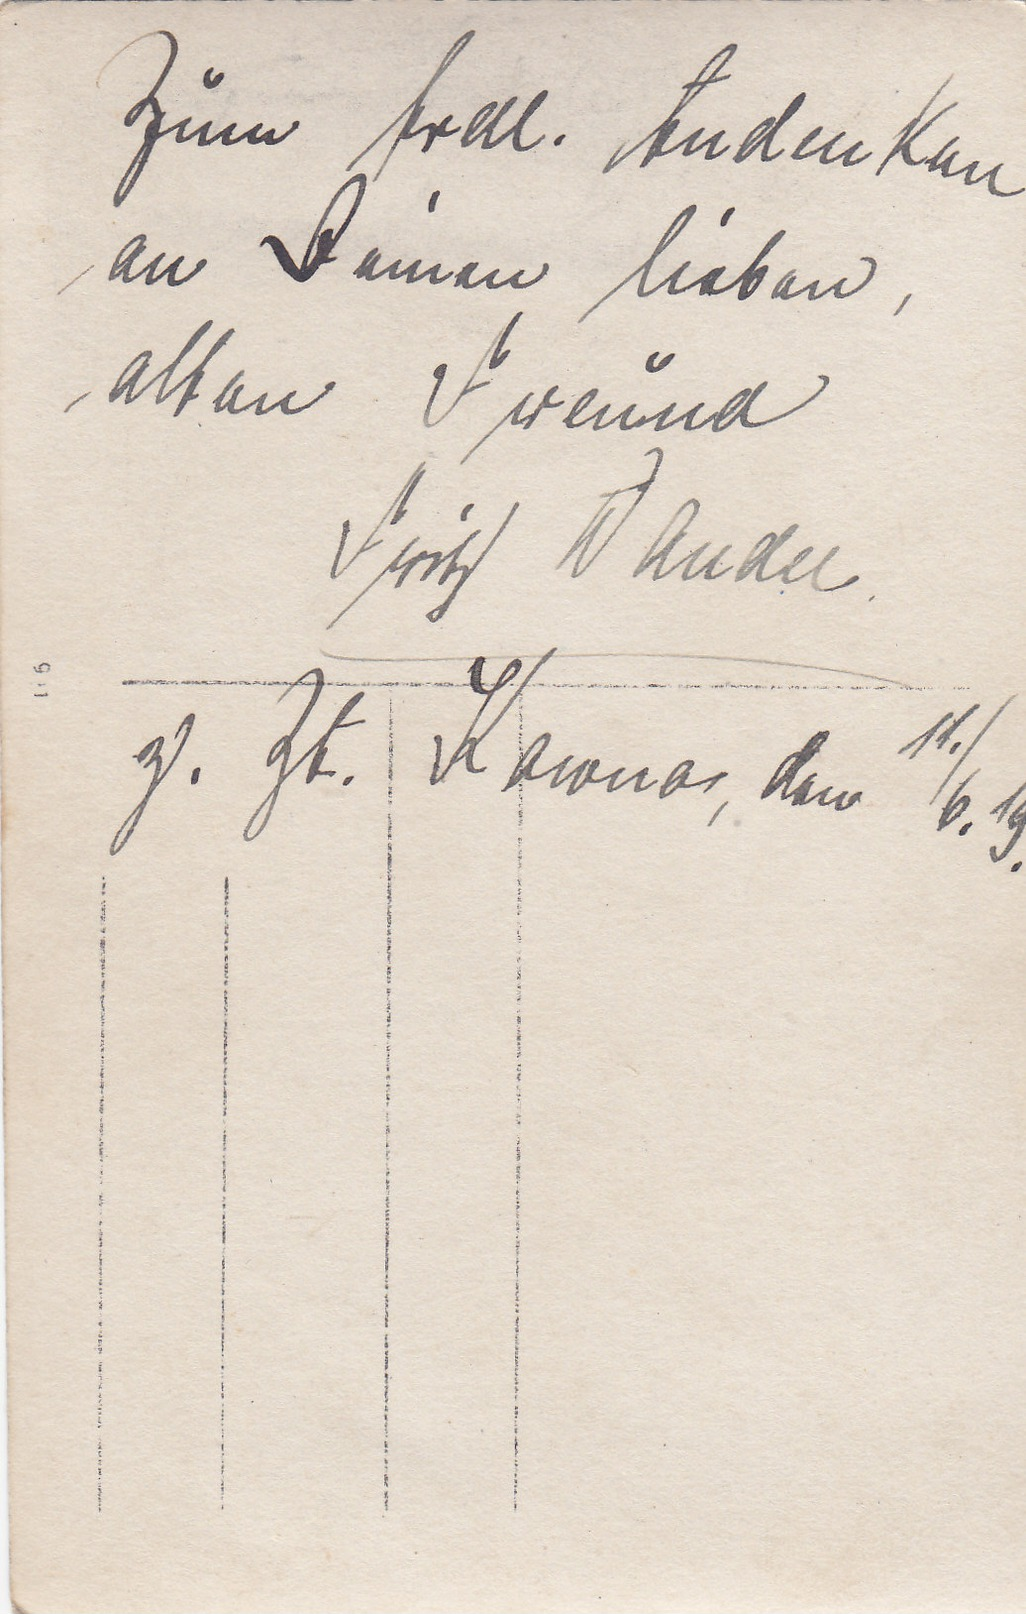 Zum frdl. Andenken
an Deinen lieben,
alten Freund
Fritz
z. Zt. Kowno, den 11./6.19.